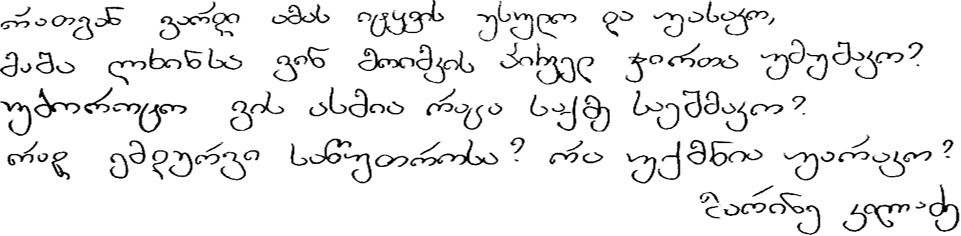 რათგან ვარდი ამას იტყვის უსულო და უასაკო,
მაშა ლხინსა ვინ მოიმკის პირველ ჭირთა უმუშაკო?
უბოროტო ვის ასმია რაცა საქმე საეშმაკო?
რად ემდურვი საწუთროსა? რა უქმნია უარაკო?
მარინე